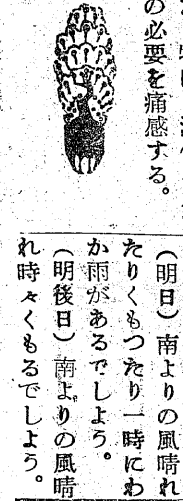 の必要を痛感する。
（明日）南よりの風晴れ
たりくもつたり一時にわ
か雨があるでしよう。
（明後日）南よりの風晴
れ時々くもるでしよう。